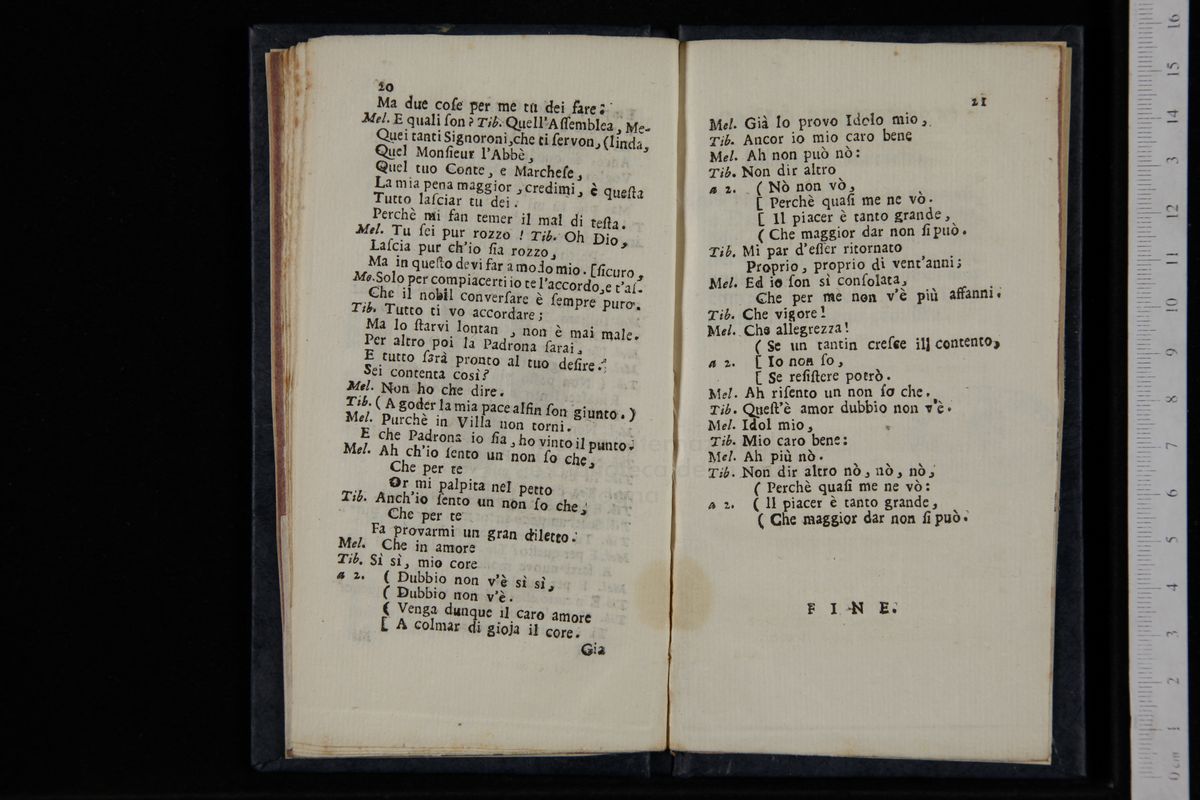 20
Ma due coſe per me tu dei fare:
Mel. E quali ſon? Tib. Quell'Aſſemblea, Me-
Quei tanti Signoroni,che ti ſervon, (linda,
Quel Monſieur l'Abbè,
Quel tuo Conte, e Marcheſe,
La mia pena maggior ,credimi, è queſta
Tutto laſciar tu dei.
Perchè mi fan temer il mal di teſta.
Mel. Tu ſei pur rozzo ! Tib. Oh Dio,
Laſcia pur ch'io ſia rozzo,
Ma in queſto devi far a modo mio. [ſicuro,
Me.Solo per compiacerti io te l'accordo,e t'aſ-
Che il nobil converſare è ſempre puro.
Tib. Tutto ti vo accordare;
Ma lo ſtarvi lontan , non è mai male.
Per altro poi la Padrona ſarai,
E tutto ſarà pronto al tuo deſire.
Sei contenta così?
Mel. Non ho che dire.
Tib. ( A goder la mia pace alfin ſon giunto. )
Mel. Purchè in Villa non torni.
E che Padrona io ſia, ho vinto il punto.
Mel. Ah ch'io ſento un non ſo che,
Che per te
Or mi palpita nel petto
Tib. Anch'io ſento un non ſo che,
Che per te
Fa provarmi un gran diletto.
Mel. Che in amore
Tib. Sì sì, mio core
a 2. ( Dubbio non v'è sì sì,
( Dubbio non v'è.
( Venga dunque il caro amore
[ A colmar di gioja il core.
Gia
21
Mel. Già lo provo Idolo mio,
Tib. Ancor io mio caro bene
Mel. Ah non può nò:
Tib. Non dir altro
a 2. ( Nò non vò,
[ Perchè quaſi me ne vò.
[ Il piacer è tanto grande,
( Che maggior dar non ſi può.
Tib. Mi par d'eſſer ritornato
Proprio, proprio di vent'anni;
Mel. Ed io ſon sì conſolata,
Che per me non v'è più affanni.
Tib. Che vigore!
Mel. Che allegrezza!
( Se un tantin creſce il contento,
a 2. [ Io non ſo,
[ Se reſiſtere potrò.
Mel. Ah riſento un non ſo che.
Tib. Queſt'è amor dubbio non v'è.
Mel. Idol mio,
Tib. Mio caro bene:
Mel. Ah più nò.
Tib. Non dir altro nò, nò, nò,
( Perchè quaſi me ne vò:
a 2. ( Il piacer è tanto grande,
( Che maggior dar non ſi può.
F I N E.
0 cm 1 2 3 4 5 6 7 8 9 10 11 12 13 14 15 16